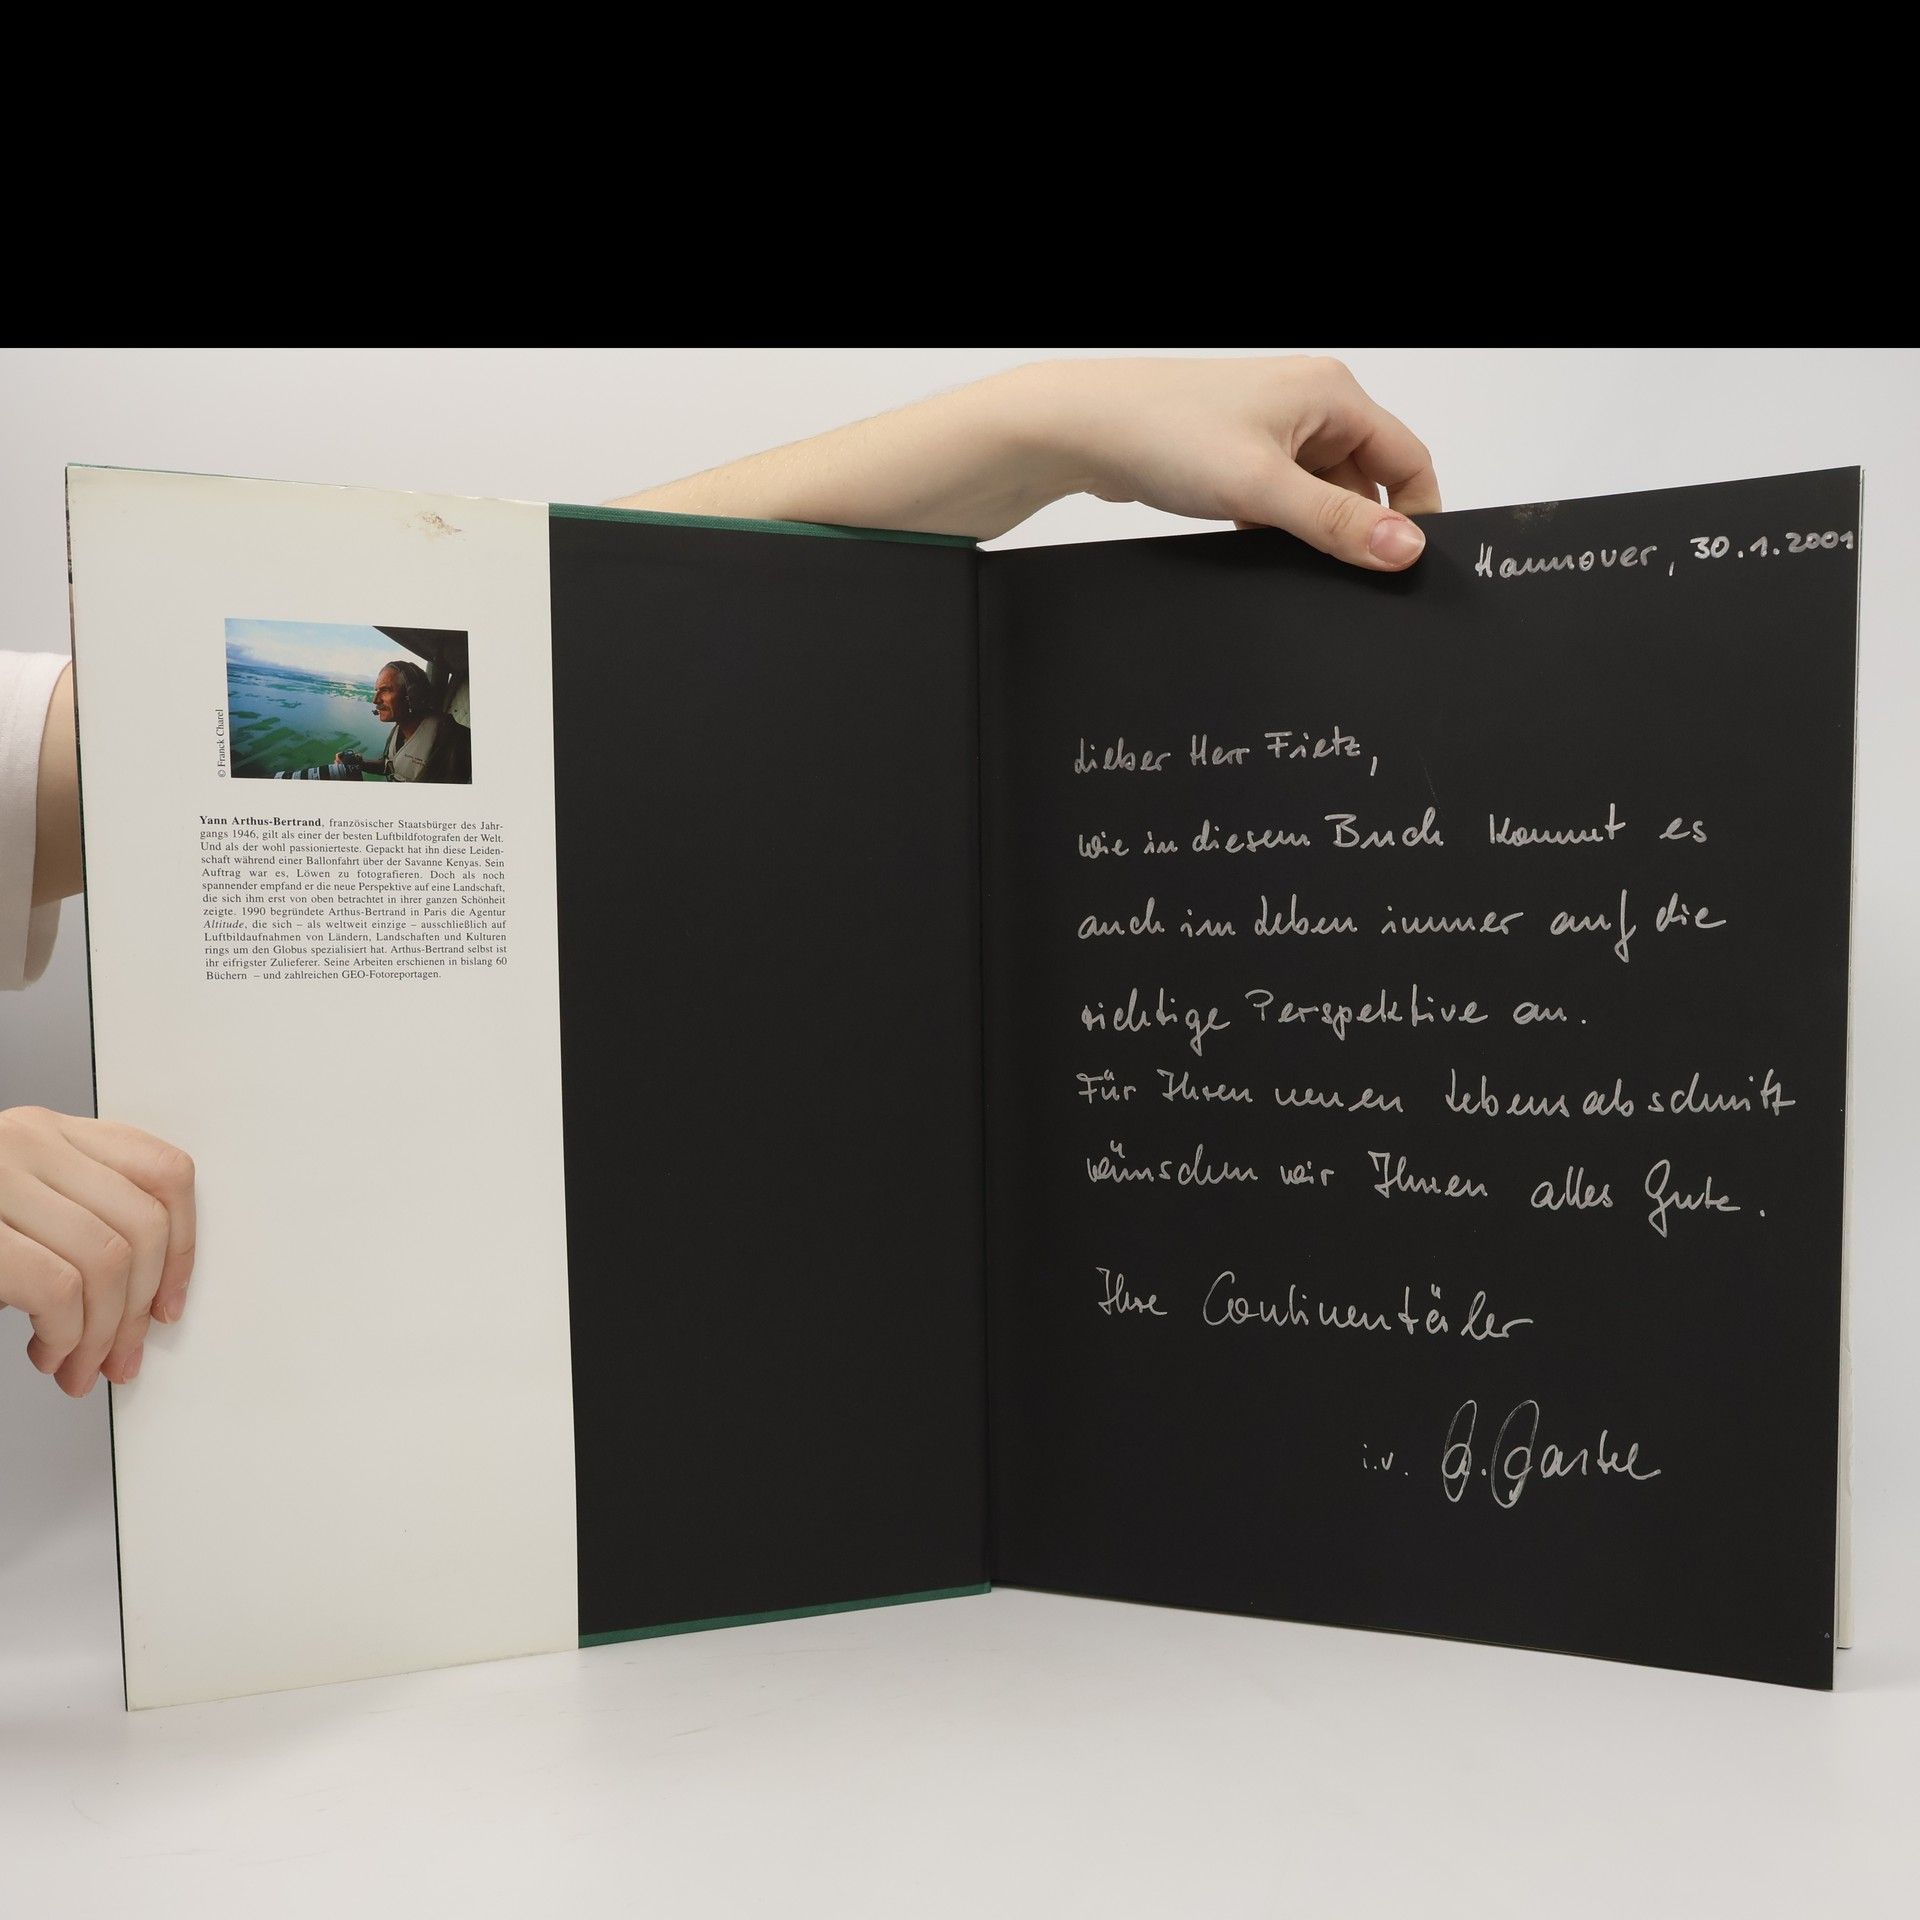 © Franck Charel
Yann Arthus-Bertrand, französischer Staatsbürger des Jahr-
gangs 1946, gilt als einer der besten Luftbildfotografen der Welt.
Und als der wohl passionierteste. Gepackt hat ihn diese Leiden-
schaft während einer Ballonfahrt über der Savanne Kenyas. Sein
Auftrag war es, Löwen zu fotografieren. Doch als noch
spannender empfand er die neue Perspektive auf eine Landschaft,
die sich ihm erst von oben betrachtet in ihrer ganzen Schönheit
zeigte. 1990 begründete Arthus-Bertrand in Paris die Agentur
Altitude, die sich – als weltweit einzige – ausschließlich auf
Luftbildaufnahmen von Ländern, Landschaften und Kulturen
rings um den Globus spezialisiert hat. Arthus-Bertrand selbst ist
ihr eifrigster Zulieferer. Seine Arbeiten erschienen in bislang 60
Büchern – und zahlreichen GEO-Fotoreportagen.
Hannover, 30.1.2001
Lieber Herr Frietz,
wie in diesem Buch kommt es
auch im Leben immer auf die
richtige Perspektive an.
Für Ihren neuen Lebensabschnitt
wünschen wir Ihnen alles Gute.
Ihre Continentäler
i.V.